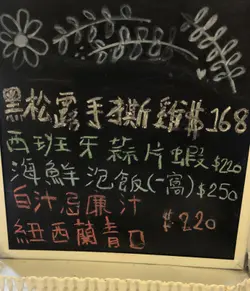 黑松露手撕雞$168
西班牙蒜片蝦$220
海鮮泡飯(一窩)$250
白汁忌廉汁
紐西蘭青口 $220